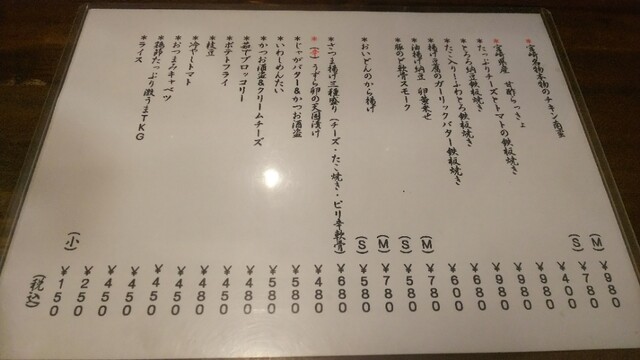 *宮崎名物本物のチキン南蛮 (M) ¥980
(S) ¥780
*宮崎県産 甘酢らっきょ ¥400
*たっぷりチーズとトマトの鉄板焼き ¥980
*とろろ納豆鉄板焼き ¥980
*たこ入りーふわとろ鉄板焼き ¥980
*揚げ豆腐のガーリックバター鉄板焼き ¥600
*油揚げ納豆 卵黄乗せ ¥600
*豚のど軟骨スモーク (M) ¥780
(S) ¥580
*おいどんのから揚げ (M) ¥780
(S) ¥580
*さつま揚げ三種盛り(チーズ・たこ焼き・ピリ辛軟骨) ¥680
*(辛)うずら卵の天国漬け ¥480
*じゃがバター&かつお酒盗 ¥580
*いわしめんたい ¥580
*かつお酒盗&クリームチーズ ¥480
*茹でブロッコリー ¥480
*ポテトフライ ¥450
*枝豆 ¥480
*冷やしトマト ¥450
*おつまみキャベツ ¥450
*鶏卵たっぷり激うまTKG ¥450
(小) ¥250
*ライス ¥150
(税込)